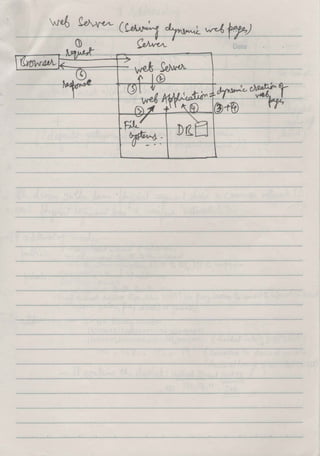 Web Server (Serving dynamic web pages)
① request
Server
Browser
⑥ response
Web Server
⑤ ②
Web Application = dynamic creation of web pages
③ ④ ③+④
File Systems.
DB